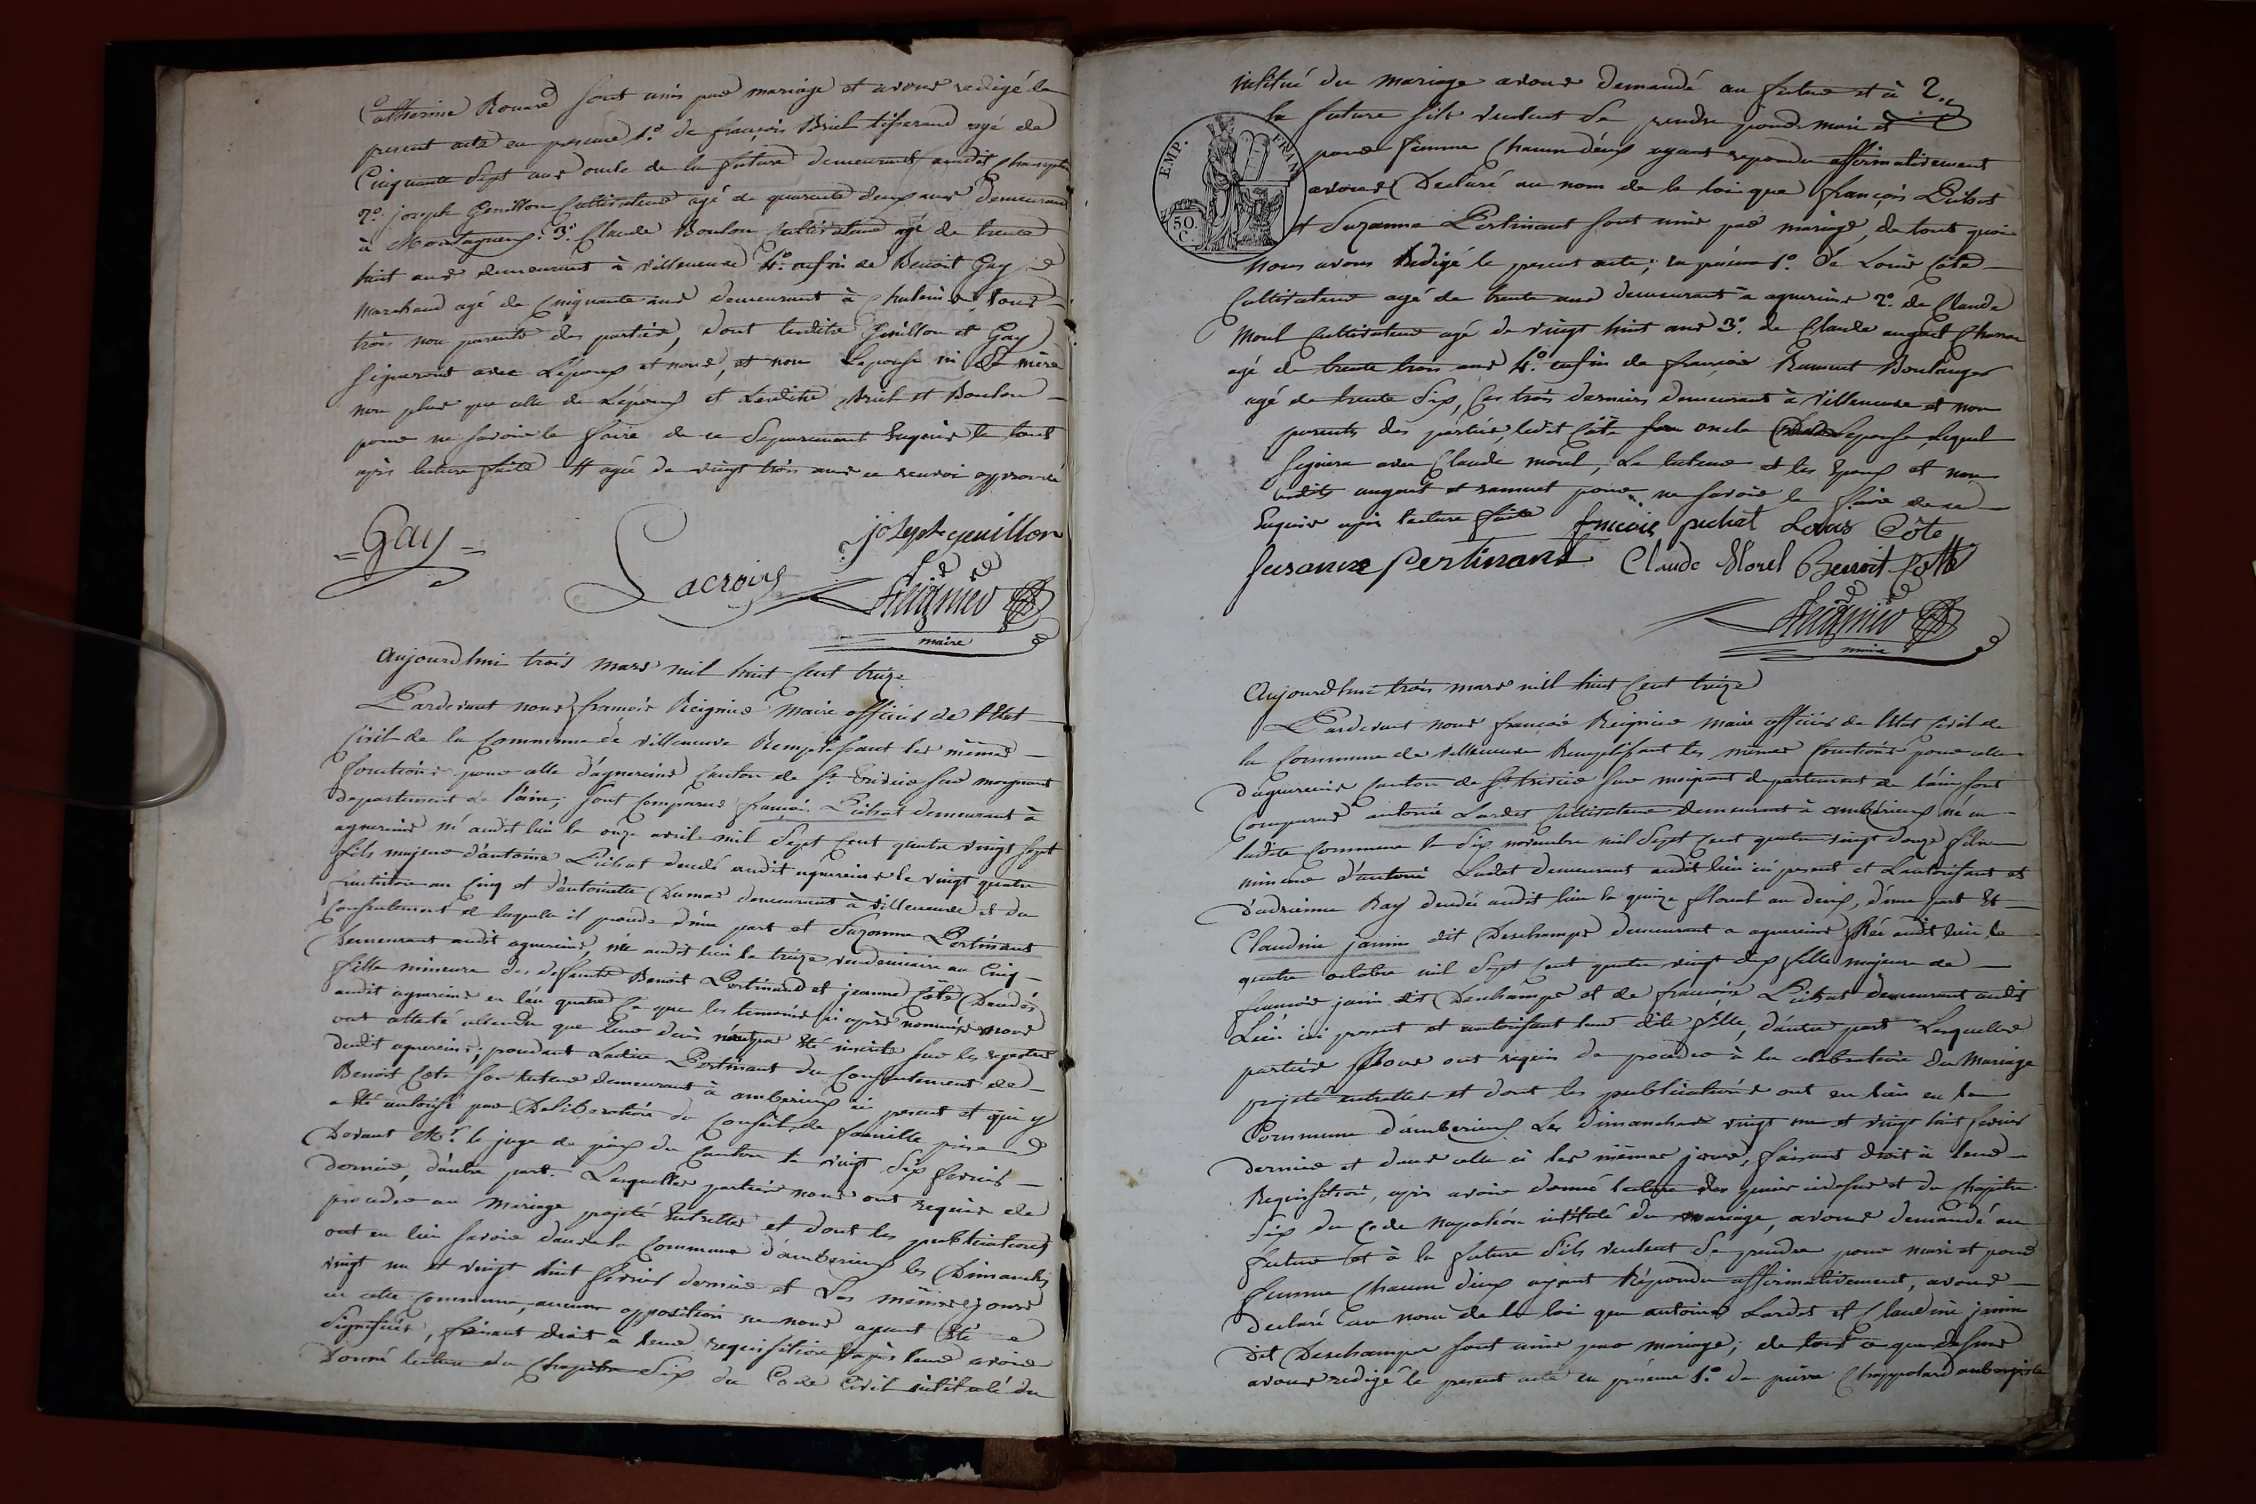 Catherine Rouard sont unis par mariage et avons redigé le
present acte en presence 1.º de françois Brich tisserand agé de
Cinquante Sept ans oncle de la future demeurant audit
2º. joseph Genillon Cultivateur agé de quarente deux ans demeurant
à Montagneux. 3.º Claude Boulon Cultivateur agé de trente
huit ans demeurant à villeneuve 4.º enfin de Benoit Gay
Marchand agé de Cinquante ans demeurant à Chaleins, tous
trois non parents des parties, dont lesdits Genillon et Gay
signeront avec L'époux et nous, et non L'epouse ni Sa mère
non plus que celle de L'époux et Lesdits Brich et Boulon
pour ne savoir le faire de ce Separement Enquis le tout
après lecture faite # agée de vingt trois ans ce renvoi approuvé
Gay
joseph genillon
Lacroix
Reignier
maire
Aujourdhui trois mars mil huit Cent treize
Pardevant nous françois Reignier Maire officier de l'Etat
Civil de la Commune de villeneuve Remplissant les mêmes
fonctions pour celle d'agnereins Canton de St. Trivier sur moignans
departement de l'ain; sont Comparus françois Pichat demeurant à
agnereins né audit lieu le onze avril mil Sept Cent quatre vingt Sept
fils majeur d'antoine Pichat decedé audit agnereins le vingt quatre
fructidor an Cinq et d'antoinette Dumas demeurant à villeneuve et du
Consentement de laquelle il procede d'une part et Suzanne Pertinant
Demeurant audit agnereins, née audit lieu le treize vendemiaire an Cinq
fille mineure des deffunts Benoit Pertinand et jeanne Côte Decedés
audit agnereins en l'an quatre Ce que les temoins ci après nommés nous
ont attesté attendu que leur decès n'ont pas été inscrits sur les registres
dudit agnereins; procedant Ladite Pertinant du Consentement de
Benoit Cote son tuteur demeurant à amberieux ici present et qui y
a été autorisé par Deliberation du Conseil de famille prise
Devant Mr. le juge de paix du Canton le vingt Six fevrier
dernier, d'autre part. Lesquelles parties nous ont requis de
proceder au Mariage projeté Entrelles et dont les publications
ont eu lieu savoir dans la Commune d'amberieux les Dimanches
vingt un et vingt huit fevrier dernier et Les mêmes jours
en cette Commune, aucune opposition ne nous ayant été
Signifiée, faisant droit à leur requisition après leur avoir
Donné lecture du Chapitre Six du Code Civil intitulé du
intitué du Mariage avons demandé au futur et à 2.
la future sils veulent Se prendre pour Mari et
EMP. FRAN
50. C.
pour femme Chacun d'eux ayant repondu affirmativement
avons Declaré au nom de la loi que françois Pichat
et Suzanne Pertinant sont unis par mariage, de tout quoi
Nous avons Redigé le present acte; en présence 1º. de Louis Côte
Cultivateur agé de trente ans demeurant à agnereins 2º. de Claude
Morel Cultivateur agé de vingt huit ans 3º. de Claude
agé de trente trois ans 4.º enfin de françois Boulanger
agé de trente Six, Ces trois derniers demeurant à villeneuve et non
parents des parties, ledit Côte oncle De L'epouse, Lequel
Signera avec Claude morel, Le tuteur et les Epoux et non
lesdits et pour ne Savoir le faire de ce
Enquis après lecture faite
françois pichat Louis Côte
Susanne pertinant Claude Morel Benoit Cotte
Reignier
maire
Aujourdhui trois mars mil huit Cent treize
Pardevant nous francois Reignier maire officier de l'Etat Civil de
la Commune de villeneuve Remplissant les mêmes fonctions pour celle
d'agnereins Canton de St. trivier sur moignans departement de l'ain sont
Comparus antoine Lardet Cultivateur demeurant à amberieux né en
ladite Commune le Six novembre mil Sept Cent quatre vingt douze fils
mineur d'antoine Lardet demeurant audit lieu ici present et L'autorisant et
d'adrienne Ray decedée audit lieu le quinze floreal an deux, d'une part Et
Claudine janin dit Deschamps demeurant a agnereins Née audit lieu le
quatre octobre mil Sept Cent quatre vingt dix fille majeure de
francois janin dit Deschamps et de francoise Pichat demeurant audit
Lieu ici present et autorisant leur dite fille, d'autre part Lesquelles
parties Nous ont requis de proceder à la celebration Du Mariage
projeté entrelles et dont les publications ont eu lieu en la
Commune d'amberieux Les dimanches vingt un et vingt huit fevrier
dernier et dans celle ci les mêmes jours, faisant droit à leur
Requisition, après avoir donné lecture des pieces cidessus et du Chapitre
Six du Code Napoléon intitulé du mariage, avons demandé au
futur et à la future Sils veulent Se prendre pour mari et pour
femme Chacun d'eux ayant Répondu affirmativement, avons
Declaré au nom de la loi que antoine Lardet et Claudine janin
dit Deschamps sont unis par mariage; de tout ce que dessus
avons redigé le present acte en présence 1.º de pierre Chappolard aubergiste